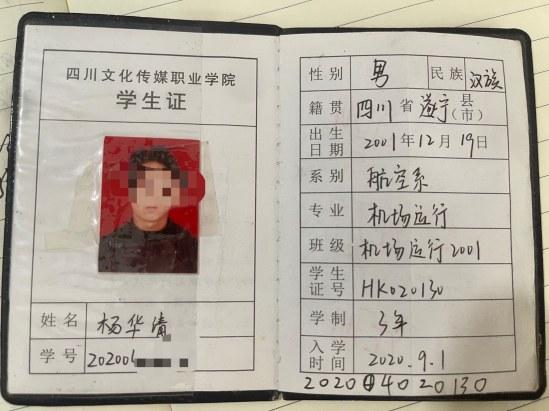 四川文化传媒职业学院
学生证
姓名 杨华清
学号 202006
性别 男 民族 汉族
籍贯 四川省遂宁县(市)
出生日期 2001年12月19日
系别 航空系
专业 机场运行
班级 机场运行2001
学生证号 HK020130
学制 3年
入学时间 2020.9.1
20204020130